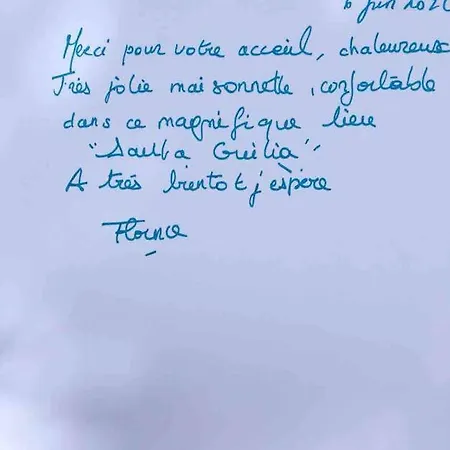 6 juin 202
Merci pour votre acceuil, chaleureux
Très jolie maisonnette, confortable
dans ce magnifique lieu
"Santa Guilia"
A très bientot j'espère
Florence